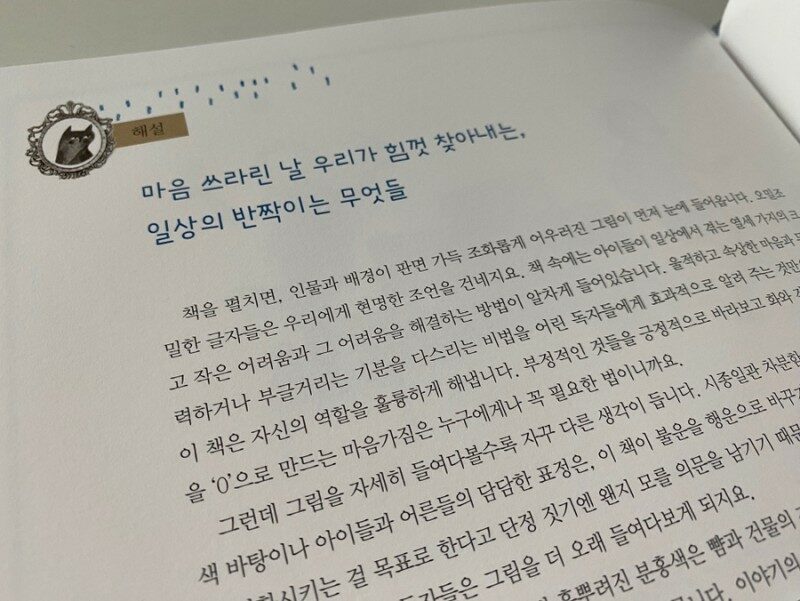 해설
마음 쓰라린 날 우리가 힘껏 찾아내는,
일상의 반짝이는 무엇들
책을 펼치면, 인물과 배경이 판면 가득 조화롭게 어우러진 그림이 먼저 눈에 들어옵니다. 오밀조
밀한 글자들은 우리에게 현명한 조언을 건네지요. 책 속에는 아이들이 일상에서 겪는 열세 가지의 크
고 작은 어려움과 그 어려움을 해결하는 방법이 알차게 들어있습니다. 울적하고 속상한 마음과
력하거나 부글거리는 기분을 다스리는 비법을 어린 독자들에게 효과적으로 알려 주는 것만
이 책은 자신의 역할을 훌륭하게 해냅니다. 부정적인 것들을 긍정적으로 바라보고 화와
을 ‘0’으로 만드는 마음가짐은 누구에게나 꼭 필요한 법이니까요.
그런데 그림을 자세히 들여다볼수록 자꾸 다른 생각이 듭니다. 시종일관 차분한
색 바탕이나 아이들과 어른들의 담담한 표정은, 이 책이 불운을 행운으로 바꾸
시키는 걸 목표로 한다고 단정 짓기엔 왠지 모를 의문을 남기기 때문
독자들은 그림을 더 오래 들여다보게 되지요.
흩뿌려진 분홍색은 뺨과 건물의
이야기의